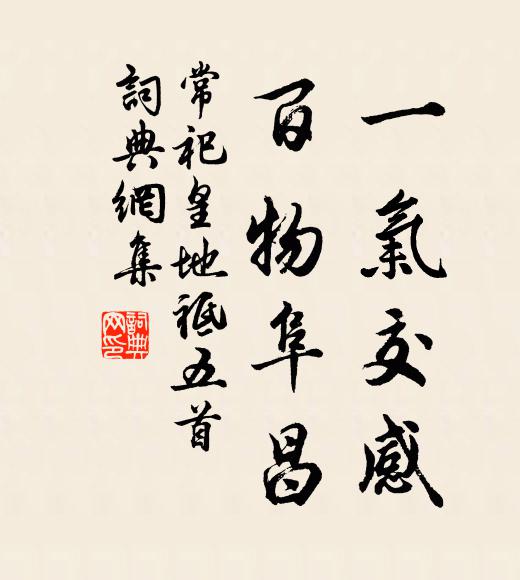 一氣交感
百物阜昌
常祀皇地祇五首
詞典網集
詞典網印